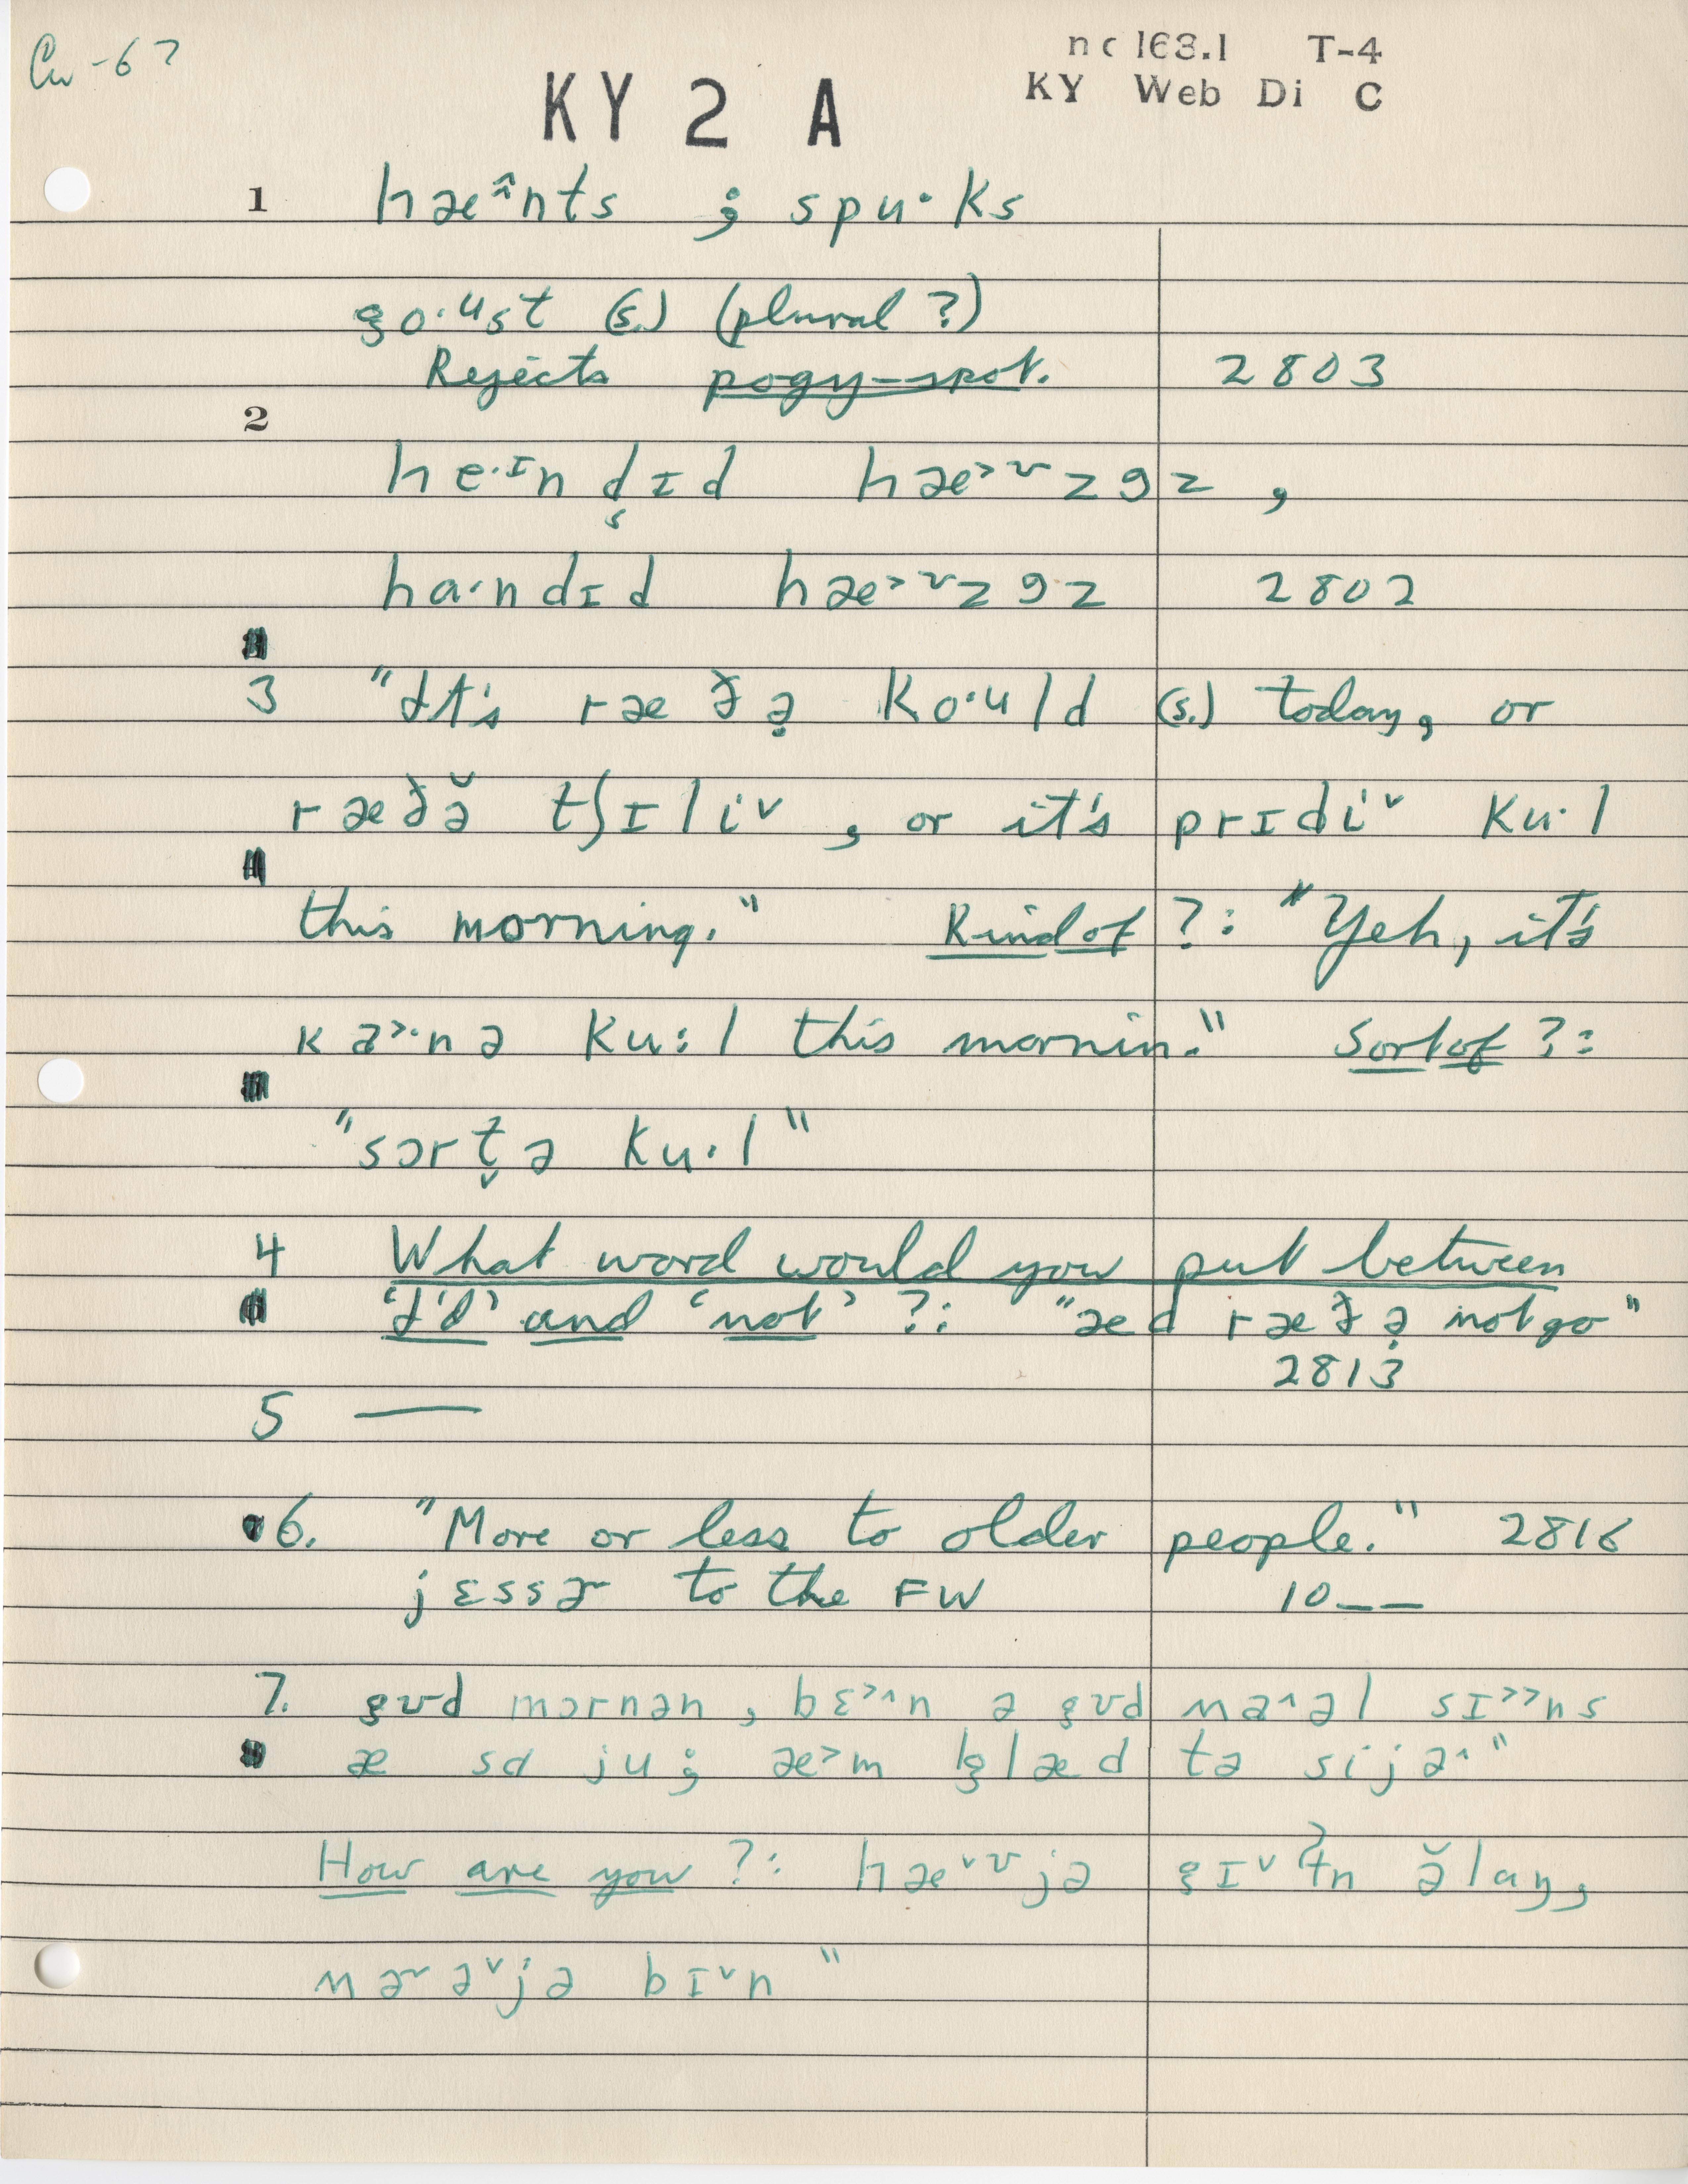 Cw-67
nc 163.1 T-4
KY Web Di C
KY 2 A
1 hæᶺnts ; spu·ks
go·ᵘst (s.) (plural ?)
Rejects pogy-spot. 2803
2
he·ᶦn d̬ɪd hæ˃ᶷzəz ,
ha·ndɪd hæ˃ᶷzəz 2802
3 "It's ræðə̣ ko·ᵘld (s.) today, or
ræðə̆ tʃɪliˇ , or it's prɪdiˇ ku·l
this morning." Kind of ?: "Yeh, it's
ka˃·nə ku:l this mornin." Sort of ?:
"sɔrt̬ə ku·l"
4 What word would you put between
'I'd' and 'not' ?: "æd ræðə̣ not go"
2813
5 —
6. "More or less to older people." 2816
jɛssɚ to the FW 10__
7. gʊd mɔrnən , bɛ˃˄n ə gʊd
How are you ?: hæˇᶷjə
bɪˇn "